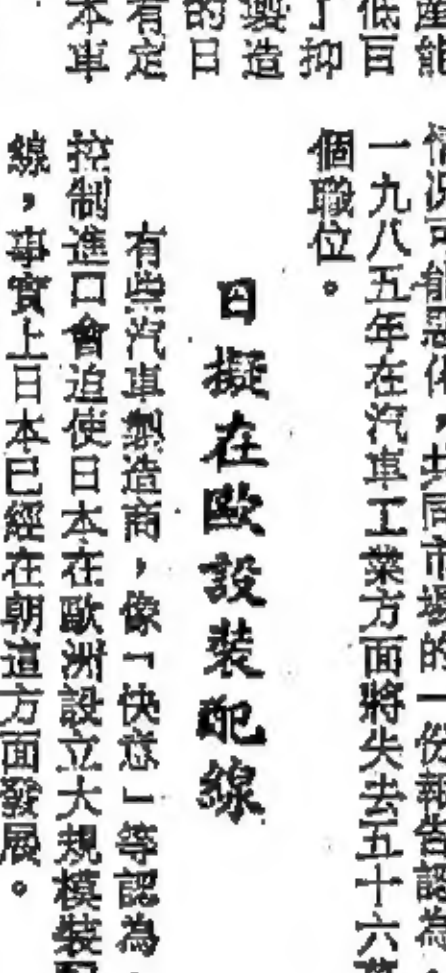 產能
低盲
了抑
製造
的日
有定
本車
情況可能惡化，共同市場的一份報告認為
一九八五年在汽車工業方面將失去五十六萬
個職位。
日擬在歐設裝配線
有些汽車製造商，像「快意」等認為，
控制進口會迫使日本在歐洲設立大規模裝配
線，事實上日本已經在朝這方面發展。